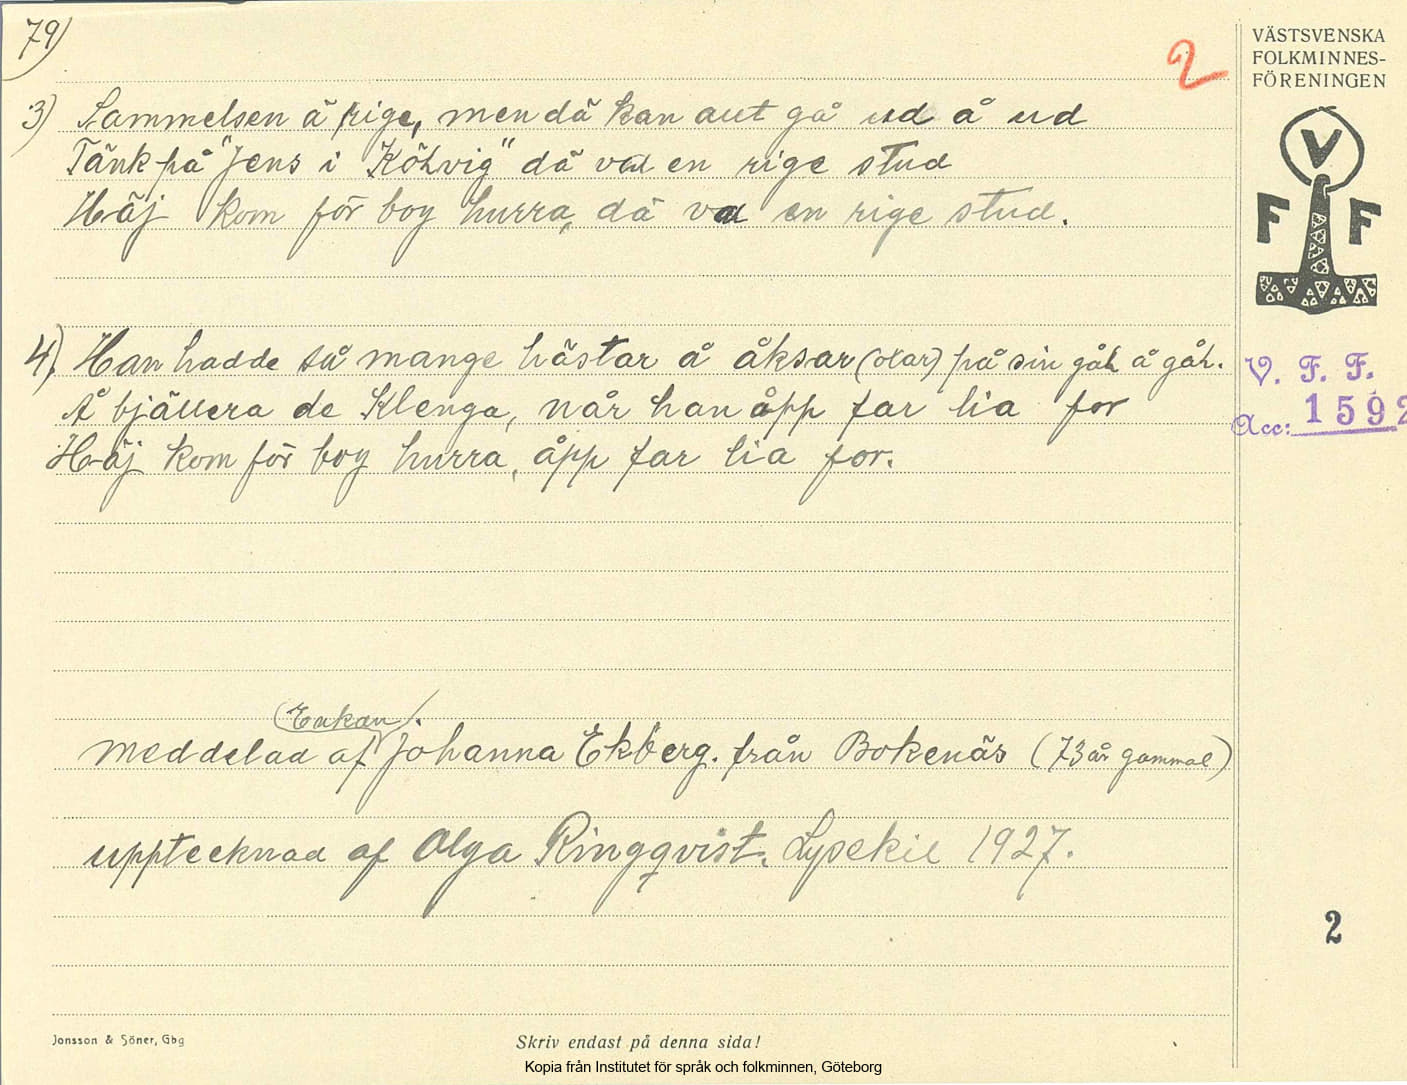 79)
2
VÄSTSVENSKA
FOLKMINNES-
FÖRENINGEN
V
F F
3) Sammelsen ä rige, men dä kan aut gå ud å ud
Tänk på "Jens i Köhvig" dä vad en rige stud
H-äj kom för boy hurra, dä vad en rige stud.
4). Han hadde så mange hästar å åksar (oxar) på sin gåh å gåh.
Å bjällera de Klenga, når han åpp far lia for
H-äj kom för boy hurra, åpp far lia for.
V. F. F.
Acc: 1592
(Enkan).
meddelad af Johanna Ekberg. från Bokenäs (73 år gammal)
upptecknad af Olga Ringqvist. Lysekil 1927.
2
Jonsson & Söner, Gbg
Skriv endast på denna sida!
Kopia från Institutet för språk och folkminnen, Göteborg